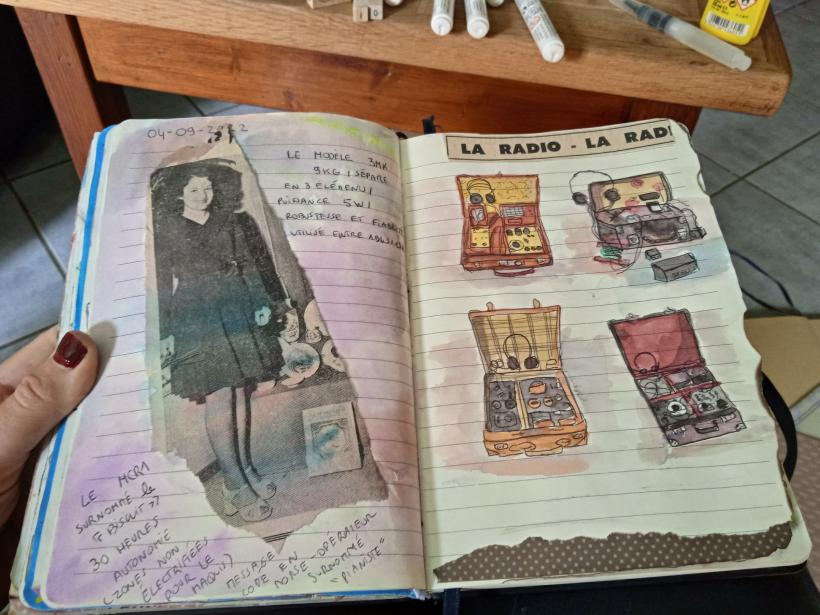 04-09-2022
LE MODELE 3MK
9KG / SÉPARÉ
EN 3
5W /
ROBUSTESSE ET
UTILISÉ ENTRE
LE MCR1
SURNOMMÉ le
« BISCUIT »
30 HEURES
AUTONOMIE
(ZONES NON
ÉLECTRIFIÉES
POUR LE
MAQUIS)
MESSAGE
CODE EN
MORSE - OPERATEUR
SURNOMMÉ
"PIANISTE"
LA RADIO - LA RADI